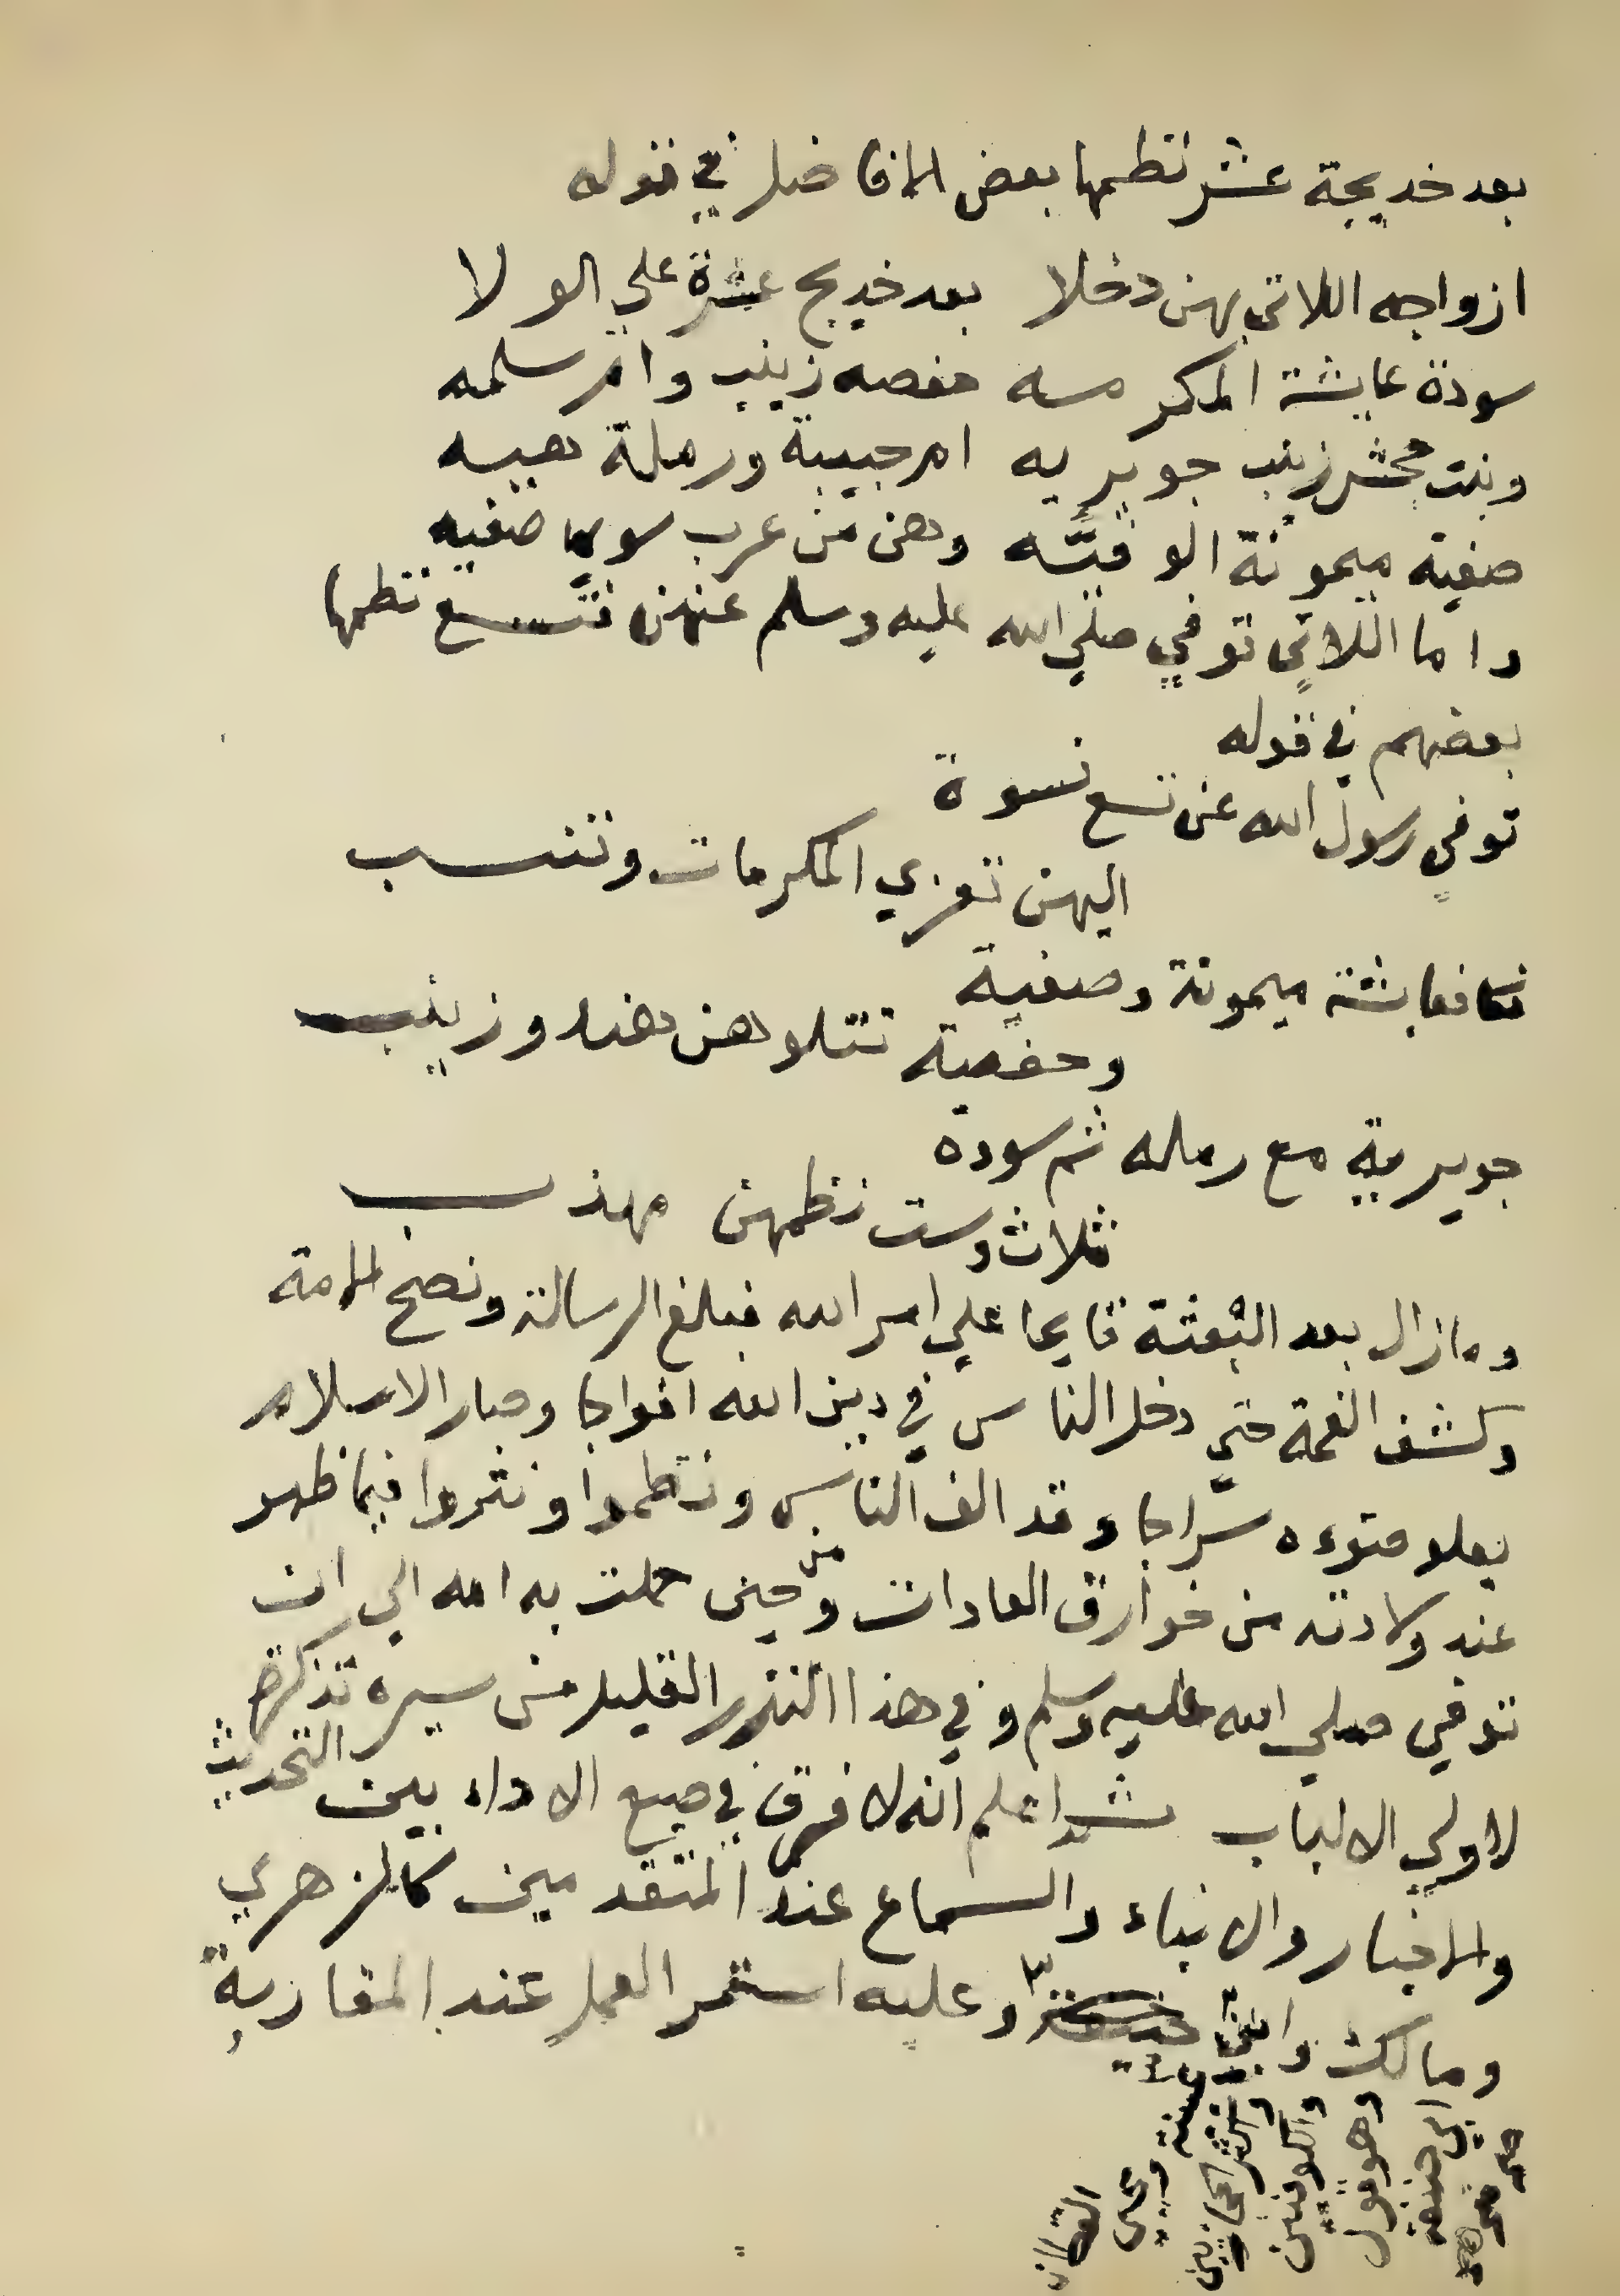 بعد خديجة عشر نظمها بعض الافاضل في قوله
ازواجه اللاتي بهن دخلا بعد خديج عشرة علي الولا
سودة عايشة المكرمسه حفصه زينب وام سلمه
وبنت جحش زينب جويريه ام حبيبة ورملة هيسه
صفية ميمونة الوفيّه وهن من عرب سوي صفيه
واما اللاتي توفي صلي الله عليه وسلم عنهن فتسع نظمها
بعضهم في قوله
توفي رسول الله عن تسع نسوة
اليهن تعزي المكرمات وتنسب
فعايشة ميمونة وصفية
وحفصة تتلوهن هند وزينب
جويرية مع رمله ثم سودة
ثلاث وست نظمهن مهذب
ومازال بعد البعثة قايما علي امر الله فبلغ الرسالة ونصح الامة
وكشف الغمة حتي دخل الناس في دين الله افواجا وصار الاسلام
يعلو ضوءه سراجا وقد الف الناس ونظموا ونثروا فيما ظهر
عند ولادته من خوارق العادات ومن حين حملت به امه الي ان
توفي صلي الله عليه وسلم وفي هذا النزر القليل من سيره تذكرة
لاولي الالباب ثم اعلم انه لا فرق في صيع الاداء بين التحديث
والاخبار والانباء والسماع عند المتقدمين كالزهري
ومالك وابن عيينة وعليه استمر العمل عند المغاربة
ابي حنيفة
وهو قول
والكوفيين
واكثر الحجازيين
ويحيي
القطان